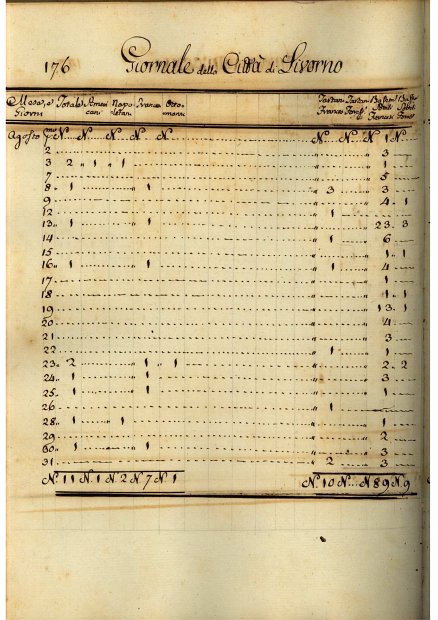 176 Giornale della Città di Livorno
Mese, e Totale Ameri Napo Francesi Otto Toscani Toscani Bastim.
Giorni cani letani manni Francesi
Agosto N. N. N. N. N. N. N. N. 1 N.
2 3
3 2 1 1 1
7 5
8 1 1 3 3
9 4 1
12 1
13 1 1 23 3
14 1 6
15 1 1
16 1 1 1 4
17 1
18 1 1
19 13 1
20 4
21 3
22 1 1
23 2 1 1 2 2
24 1 1 3
25 1 1 1
26 1
28 1 1 1
29 2
30 1 1 3
31 2 3
N. 11 N. 1 N. 2 N. 7 N. 1 N. 10 N. N. 89 N. 9